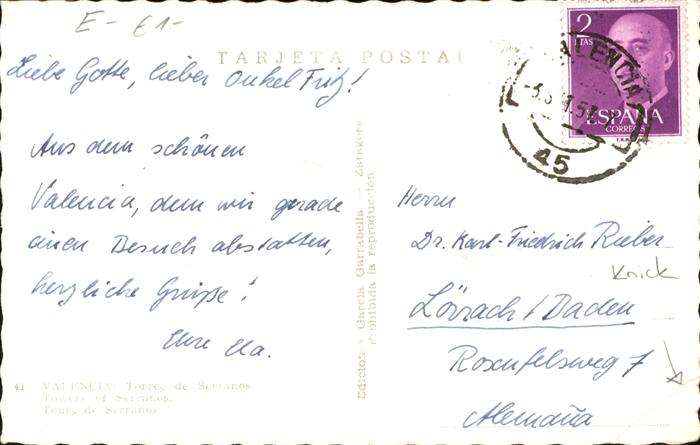 E-61-
TARJETA POSTAL
Liebe Gotte, lieber Onkel Fritz!
Aus dem schönen
Valencia, dem wir gerade
einen Besuch abstatten,
herzliche Grüße!
Eure
41 VALENCIA: Torres de Serranos
Towers of Serranos.
Tours de Serranos
Edición García Garrabella - Zaragoza
Prohibida la reproducción
2
PTAS
ESPAÑA
CORREOS
VALENCIA
45
Herrn
Dr. Karl-Friedrich Rieber
Knick
Lörrach / Baden
Rosenfelsweg 7
Alemaña